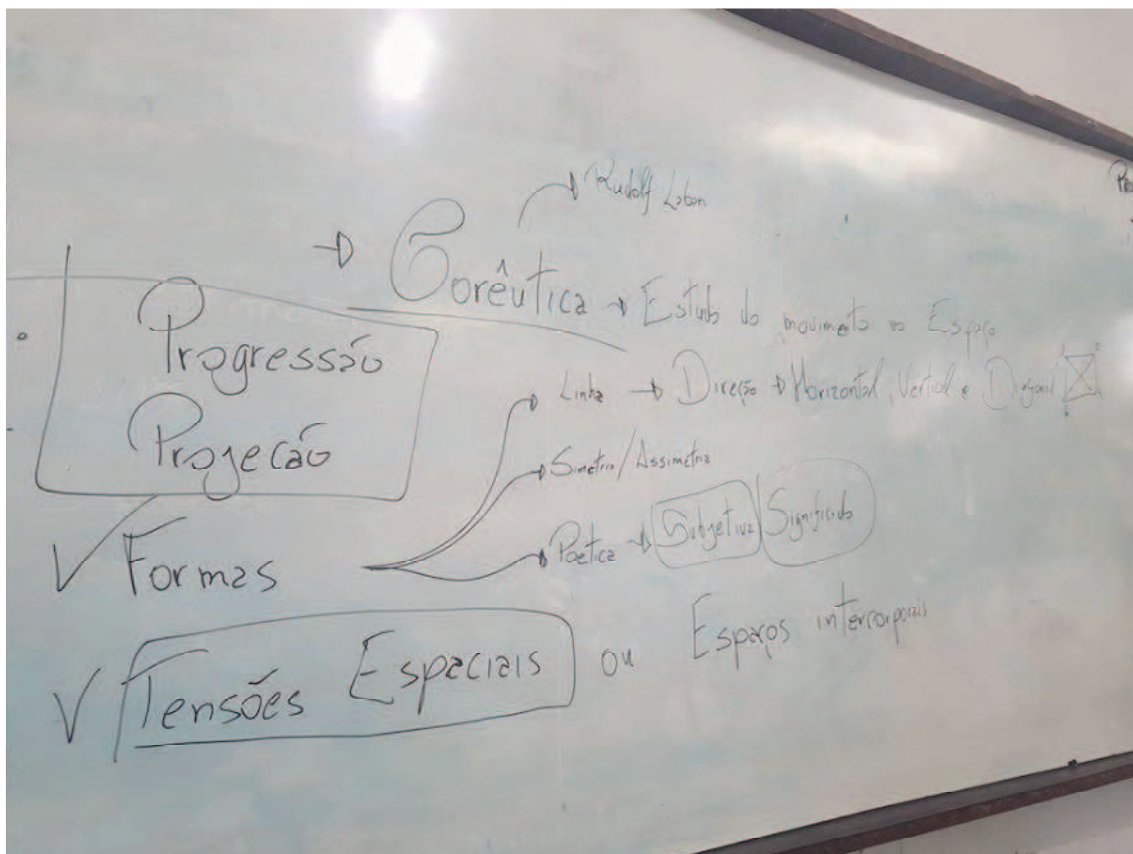 → Rudolf Laban
→ Corêutica → Estudo do movimento no Espaço
Progressão
Projecão
→ Linha → Direção → Horizontal, Vertical e Diagonal
→ Simetria/Assimetria
→ Poética → Subjetiva/Significado
✓ Formas
✓ Tensões Espaciais ou Espaços intercorporais